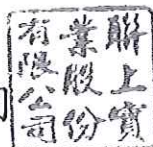 聯上實
業股份
有限公司